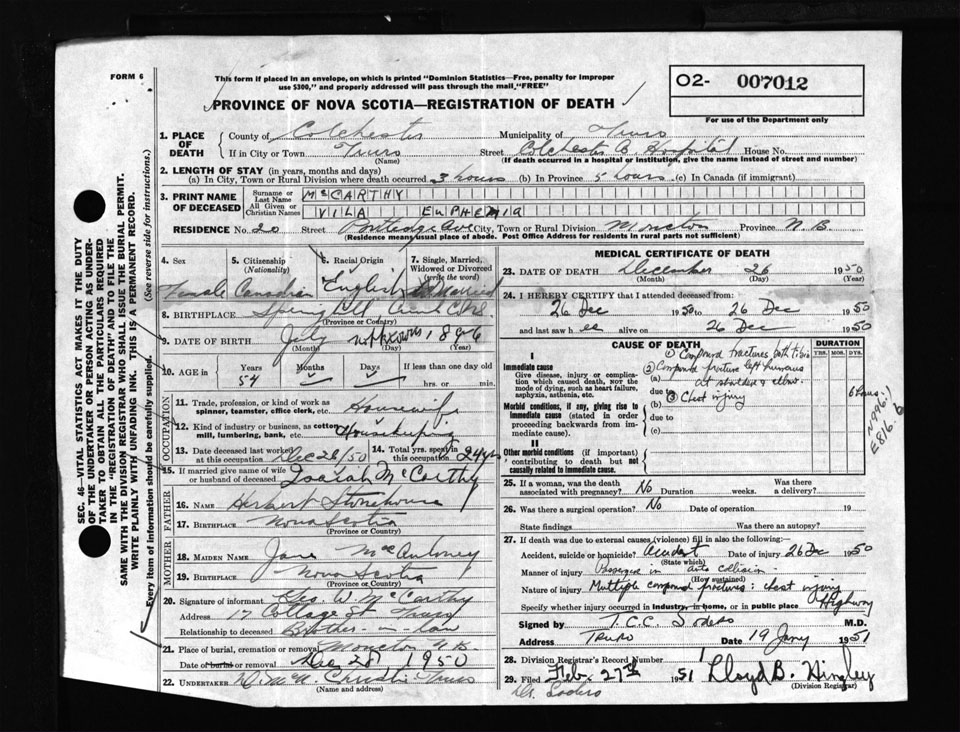 FORM 6
This form if placed in an envelope, on which is printed "Dominion Statistics—Free, penalty for improper
use $300," and properly addressed will pass through the mail "FREE"
O2- 007012
For use of the Department only
PROVINCE OF NOVA SCOTIA—REGISTRATION OF DEATH
1. PLACE OF DEATH
County of Colchester Municipality of Truro
If in City or Town Truro Street Colchester C. Hospital House No.
(Name) (If death occurred in a hospital or institution, give the name instead of street and number)
2. LENGTH OF STAY (in years, months and days)
(a) In City, Town or Rural Division where death occurred 3 hours (b) In Province 5 hours (c) In Canada (if immigrant)
3. PRINT NAME OF DECEASED
Surname or Last Name McCARTHY
All Given or Christian Names VILA EUPHEMIA
RESIDENCE No. 20 Street Portledge Ave City, Town or Rural Division Moncton Province N.B.
(Residence means usual place of abode. Post Office Address for residents in rural parts not sufficient)
4. Sex Female
5. Citizenship (Nationality) Canadian
6. Racial Origin English
7. Single, Married, Widowed or Divorced (write the word) Married
8. BIRTHPLACE Springhill, Cumb. Co. N.S.
(Province or Country)
9. DATE OF BIRTH July not known 1896
(Month) (Day) (Year)
10. AGE in Years 54 Months Days If less than one day old
hrs. or min.
OCCUPATION
11. Trade, profession, or kind of work as spinner, teamster, office clerk, etc. Housewife
12. Kind of industry or business, as cotton mill, lumbering, bank, etc. Housekeeping
13. Date deceased last worked at this occupation Dec 26/50
14. Total yrs. spent in this occupation 24 yrs
15. If married give name of wife or husband of deceased Isaiah McCarthy
FATHER
16. Name Herbert Stonehouse
17. BIRTHPLACE Nova Scotia
(Province or Country)
MOTHER
18. MAIDEN NAME Jane
19. BIRTHPLACE Nova Scotia
(Province or Country)
20. Signature of informant Geo. W. McCarthy
Address 17 Cottage St Truro
Relationship to deceased Brother-in-law
21. Place of burial, cremation or removal Moncton N.B.
Date of burial or removal Dec 28 1950
22. UNDERTAKER D. McN. Christie Truro
(Name and address)
MEDICAL CERTIFICATE OF DEATH
23. DATE OF DEATH December 26 1950
(Month) (Day) (Year)
24. I HEREBY CERTIFY that I attended deceased from:
26 Dec 1950 to 26 Dec 1950
and last saw her alive on 26 Dec 1950
CAUSE OF DEATH
DURATION
YRS. MOS. DYS.
I
Immediate cause
Give disease, injury or complication which caused death, NOT the mode of dying, such as heart failure, asphyxia, asthenia, etc.
① Compound fractures both tibia
② Compound fracture left humerus
(a) at shoulder & elbow
due to
③ Chest injury
6 hours
Morbid conditions, if any, giving rise to immediate cause (stated in order proceeding backwards from immediate cause).
(b)
due to
(c)
II
Other morbid conditions (if important) contributing to death but not causally related to immediate cause.
N996.1
E816.6
25. If a woman, was the death associated with pregnancy? No Duration weeks. Was there a delivery?
26. Was there a surgical operation? No Date of operation 19
State findings Was there an autopsy?
27. If death was due to external causes (violence) fill in also the following:
Accident, suicide or homicide? Accident Date of injury 26 Dec 1950
(State which)
Manner of injury Passenger in auto collision
(How sustained)
Nature of injury Multiple compound fractures; chest injury
Specify whether injury occurred in industry, in home, or in public place Highway
Signed by T.C.C. Sodero M.D.
Address Truro Date 19 Jany 1951
28. Division Registrar's Record Number 1
29. Filed Feb. 27th 1951 Lloyd B. Hingley
(Division Registrar)
Dr. Sodero
SEC. 46—VITAL STATISTICS ACT MAKES IT THE DUTY
OF THE UNDERTAKER OR PERSON ACTING AS UNDERTAKER
TO OBTAIN ALL THE PARTICULARS REQUIRED
IN THE "REGISTRATION OF DEATH" AND TO FILE THE
SAME WITH THE DIVISION REGISTRAR WHO SHALL ISSUE THE BURIAL PERMIT.
WRITE PLAINLY WITH UNFADING INK. THIS IS A PERMANENT RECORD.
Every item of information should be carefully supplied. (See reverse side for instructions.)